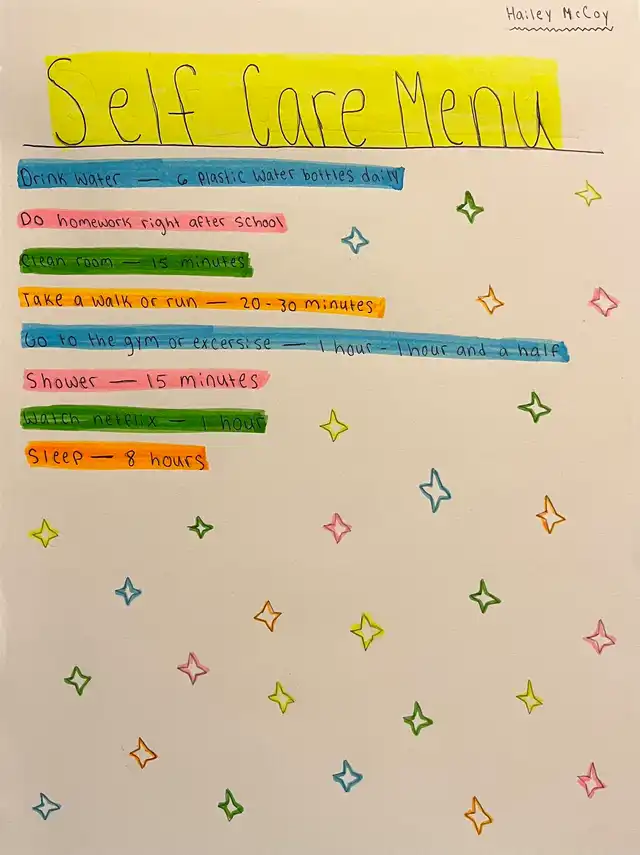 Hailey McCoy
Self Care Menu
Drink water — 6 plastic water bottles daily
Do homework right after school
Clean room — 15 minutes
Take a walk or run — 20-30 minutes
Go to the gym or excersise — 1 hour - 1 hour and a half
Shower — 15 minutes
Watch netflix — 1 hour
Sleep — 8 hours